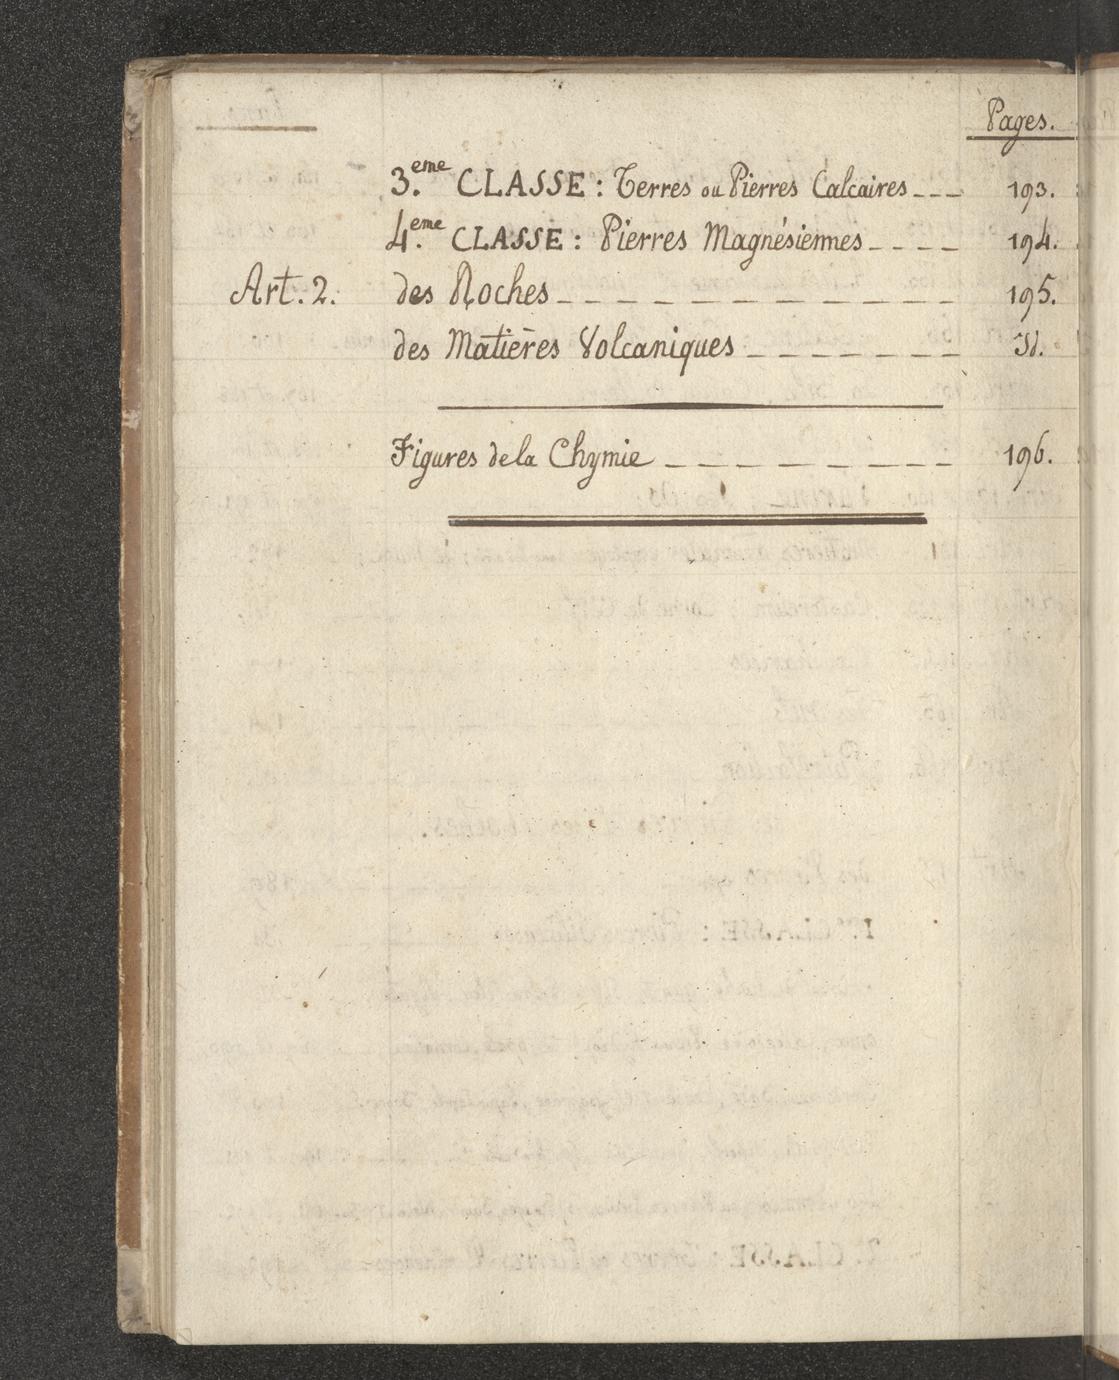 Pages.
3.eme CLASSE : Terres ou Pierres Calcaires___ 193.
4.eme CLASSE : Pierres Magnésiennes____ 194.
Art. 2. des Roches_ _ _ _ _ _ _ _ _ 195.
des Matières Volcaniques _ _ _ _ _ _ _ Id.
Figures de la Chymie _ _ _ _ _ _ _ _ 196.